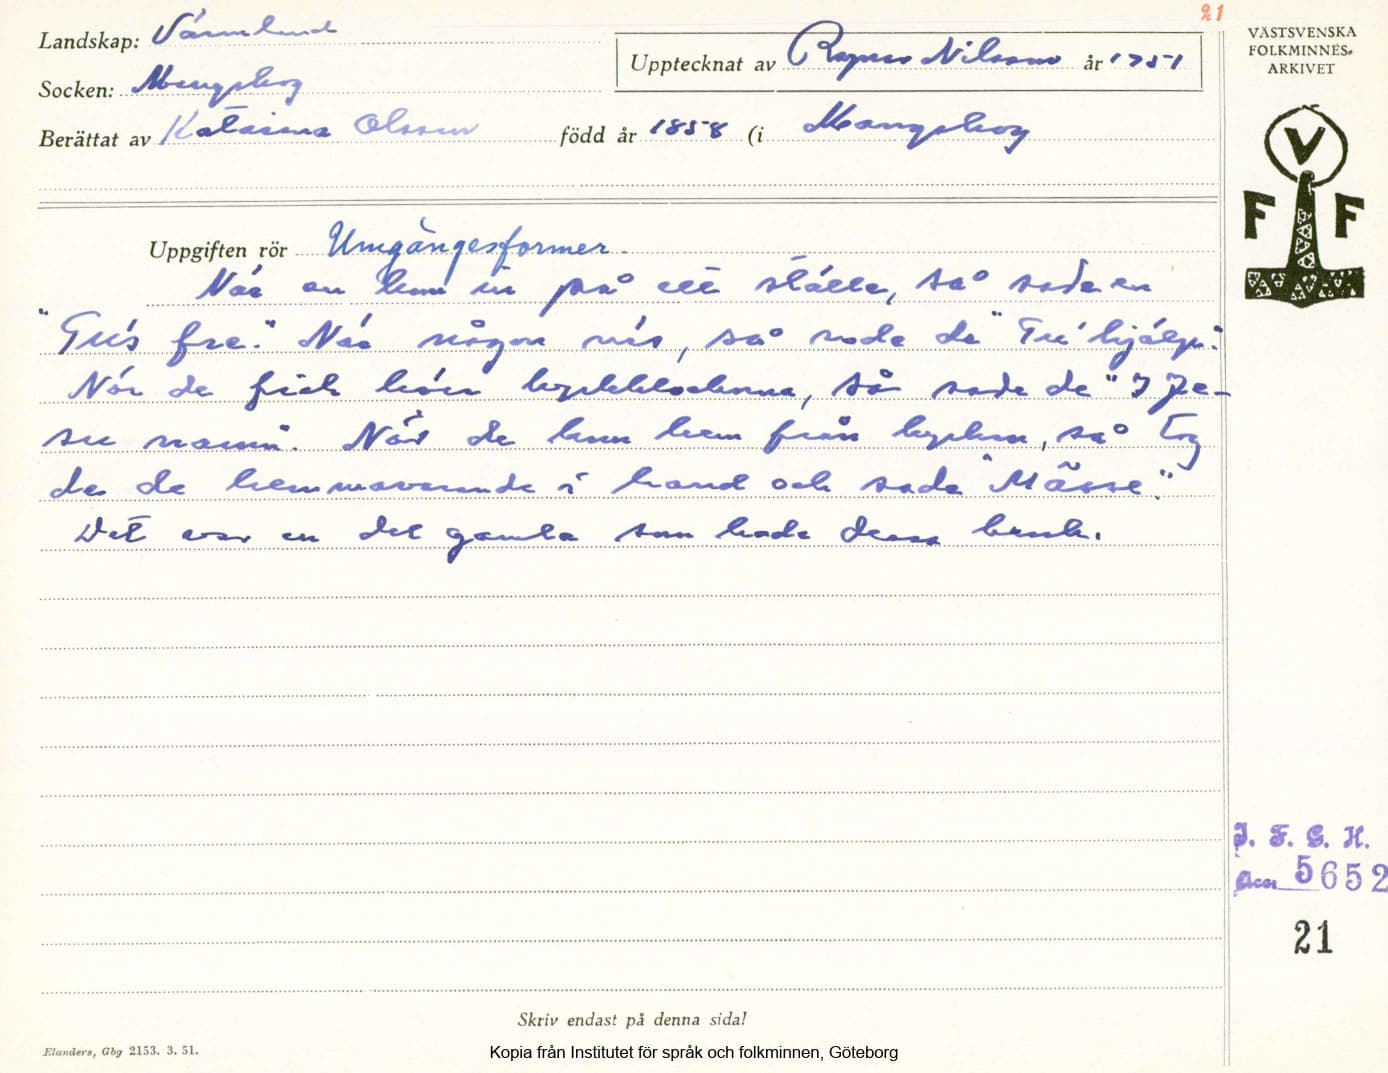 21
Landskap: Värmland
Upptecknat av Ragnar Nilsson år 1951
VÄSTSVENSKA
FOLKMINNES-
ARKIVET
Socken: Mangskog
Berättat av Katarina Olsson född år 1858 (i Mangskog
V
F F
Uppgiften rör Umgängesformer.
När en kom in på ett ställe, så sade en
"Gus fre". När någon nös, så sade de "Gu' hjälp".
När de fick höra kyrkklockorna, så sade de "I Je-
su namn". När de kom hem från kyrkan, så tog
de de hemmavarande i hand och sade "Mässe".
Det var en del gamla som hade dessa bruk.
I. F. G. H.
Acc 5652
21
Skriv endast på denna sida!
Elanders, Gbg 2153. 3. 51.
Kopia från Institutet för språk och folkminnen, Göteborg